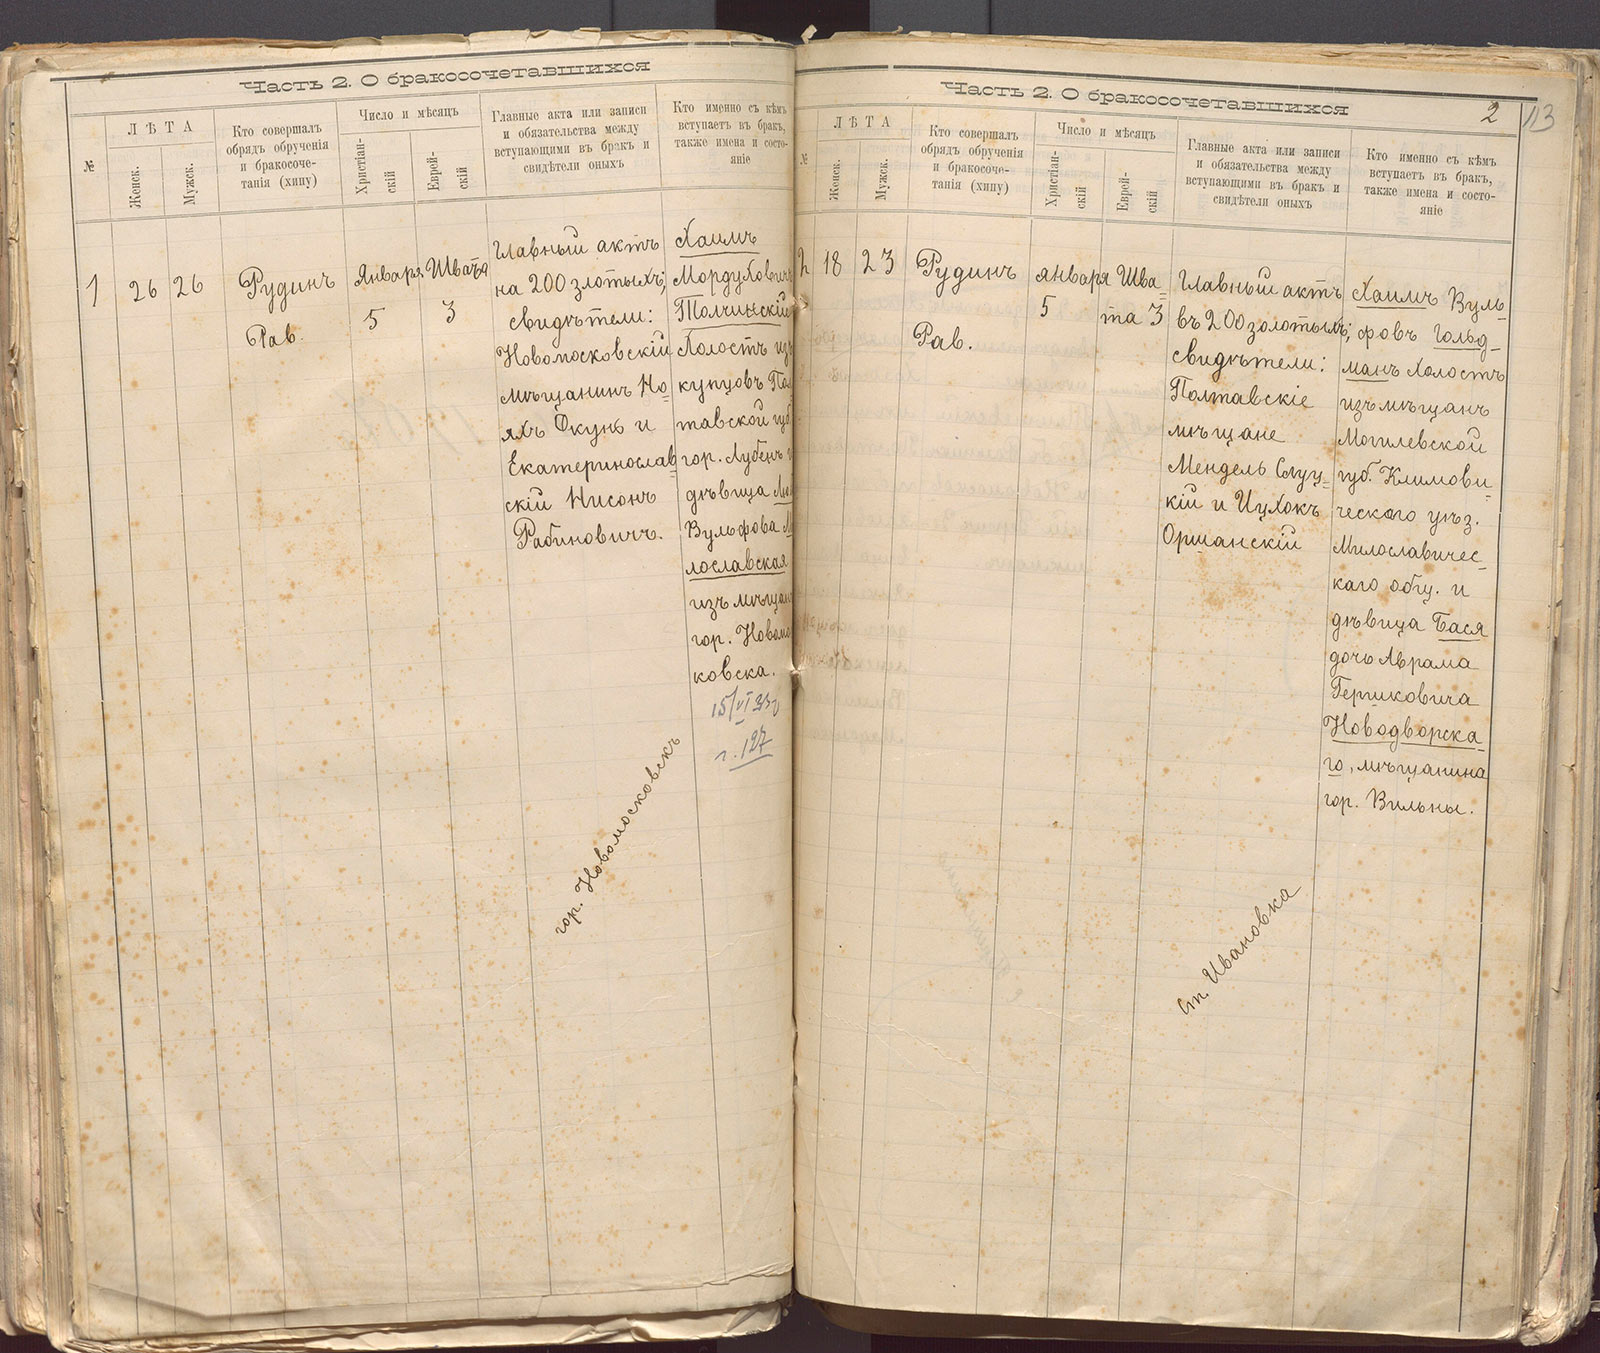 Часть 2. О бракосочетавшихся
№
ЛѢТА
Женск.
Мужск.
Кто совершалъ
обрядъ обрученія
и бракосоче-
танія (хипу)
Число и мѣсяцъ
Христіан-
скій
Еврей-
скій
Главные акта или записи
и обязательства между
вступающими въ бракъ и
свидѣтели оныхъ
Кто именно съ кѣмъ
вступаетъ въ бракъ,
также имена и состо-
яніе
1
26
26
Рудинъ
Рав.
Января
5
Швата
3
Главный актъ
на 200 злотыхъ;
свидѣтели:
Новомосковскій
мѣщанинъ Но-
яхъ Окунь и
Екатеринослав-
скій Нисонъ
Рабиновичъ.
Хаимъ
Мордуховичъ
Толчинскій
Холостъ изъ
купцовъ Пол
тавской губ.
гор. Лубенъ и
дѣвица
Вульфова
лославская
изъ мѣщан
гор. Новомо
ковска.
15/VI
г. 127
гор. Новомосковскъ
Часть 2. О бракосочетавшихся
2
113
№
ЛѢТА
Женск.
Мужск.
Кто совершалъ
обрядъ обрученія
и бракосоче-
танія (хипу)
Число и мѣсяцъ
Христіан-
скій
Еврей-
скій
Главные акта или записи
и обязательства между
вступающими въ бракъ и
свидѣтели оныхъ
Кто именно съ кѣмъ
вступаетъ въ бракъ,
также имена и состо-
яніе
2
18
23
Рудинъ
Рав.
января
5
Шва-
та 3
Главный актъ
въ 200 золотыхъ;
свидѣтели:
Полтавскіе
мѣщане
Мендель Слуц-
кій и Ицхокъ
Оршанскій
Хаимъ Вуль-
фовъ Гольд-
манъ Холостъ
изъ мѣщанъ
Могилевской
губ. Климови-
ческаго уѣз.
Милославичес-
каго общ. и
дѣвица Бася
дочь Аврама
Гершковича
Новодворска-
го, мѣщанина
гор. Вильны.
Ст. Ивановка